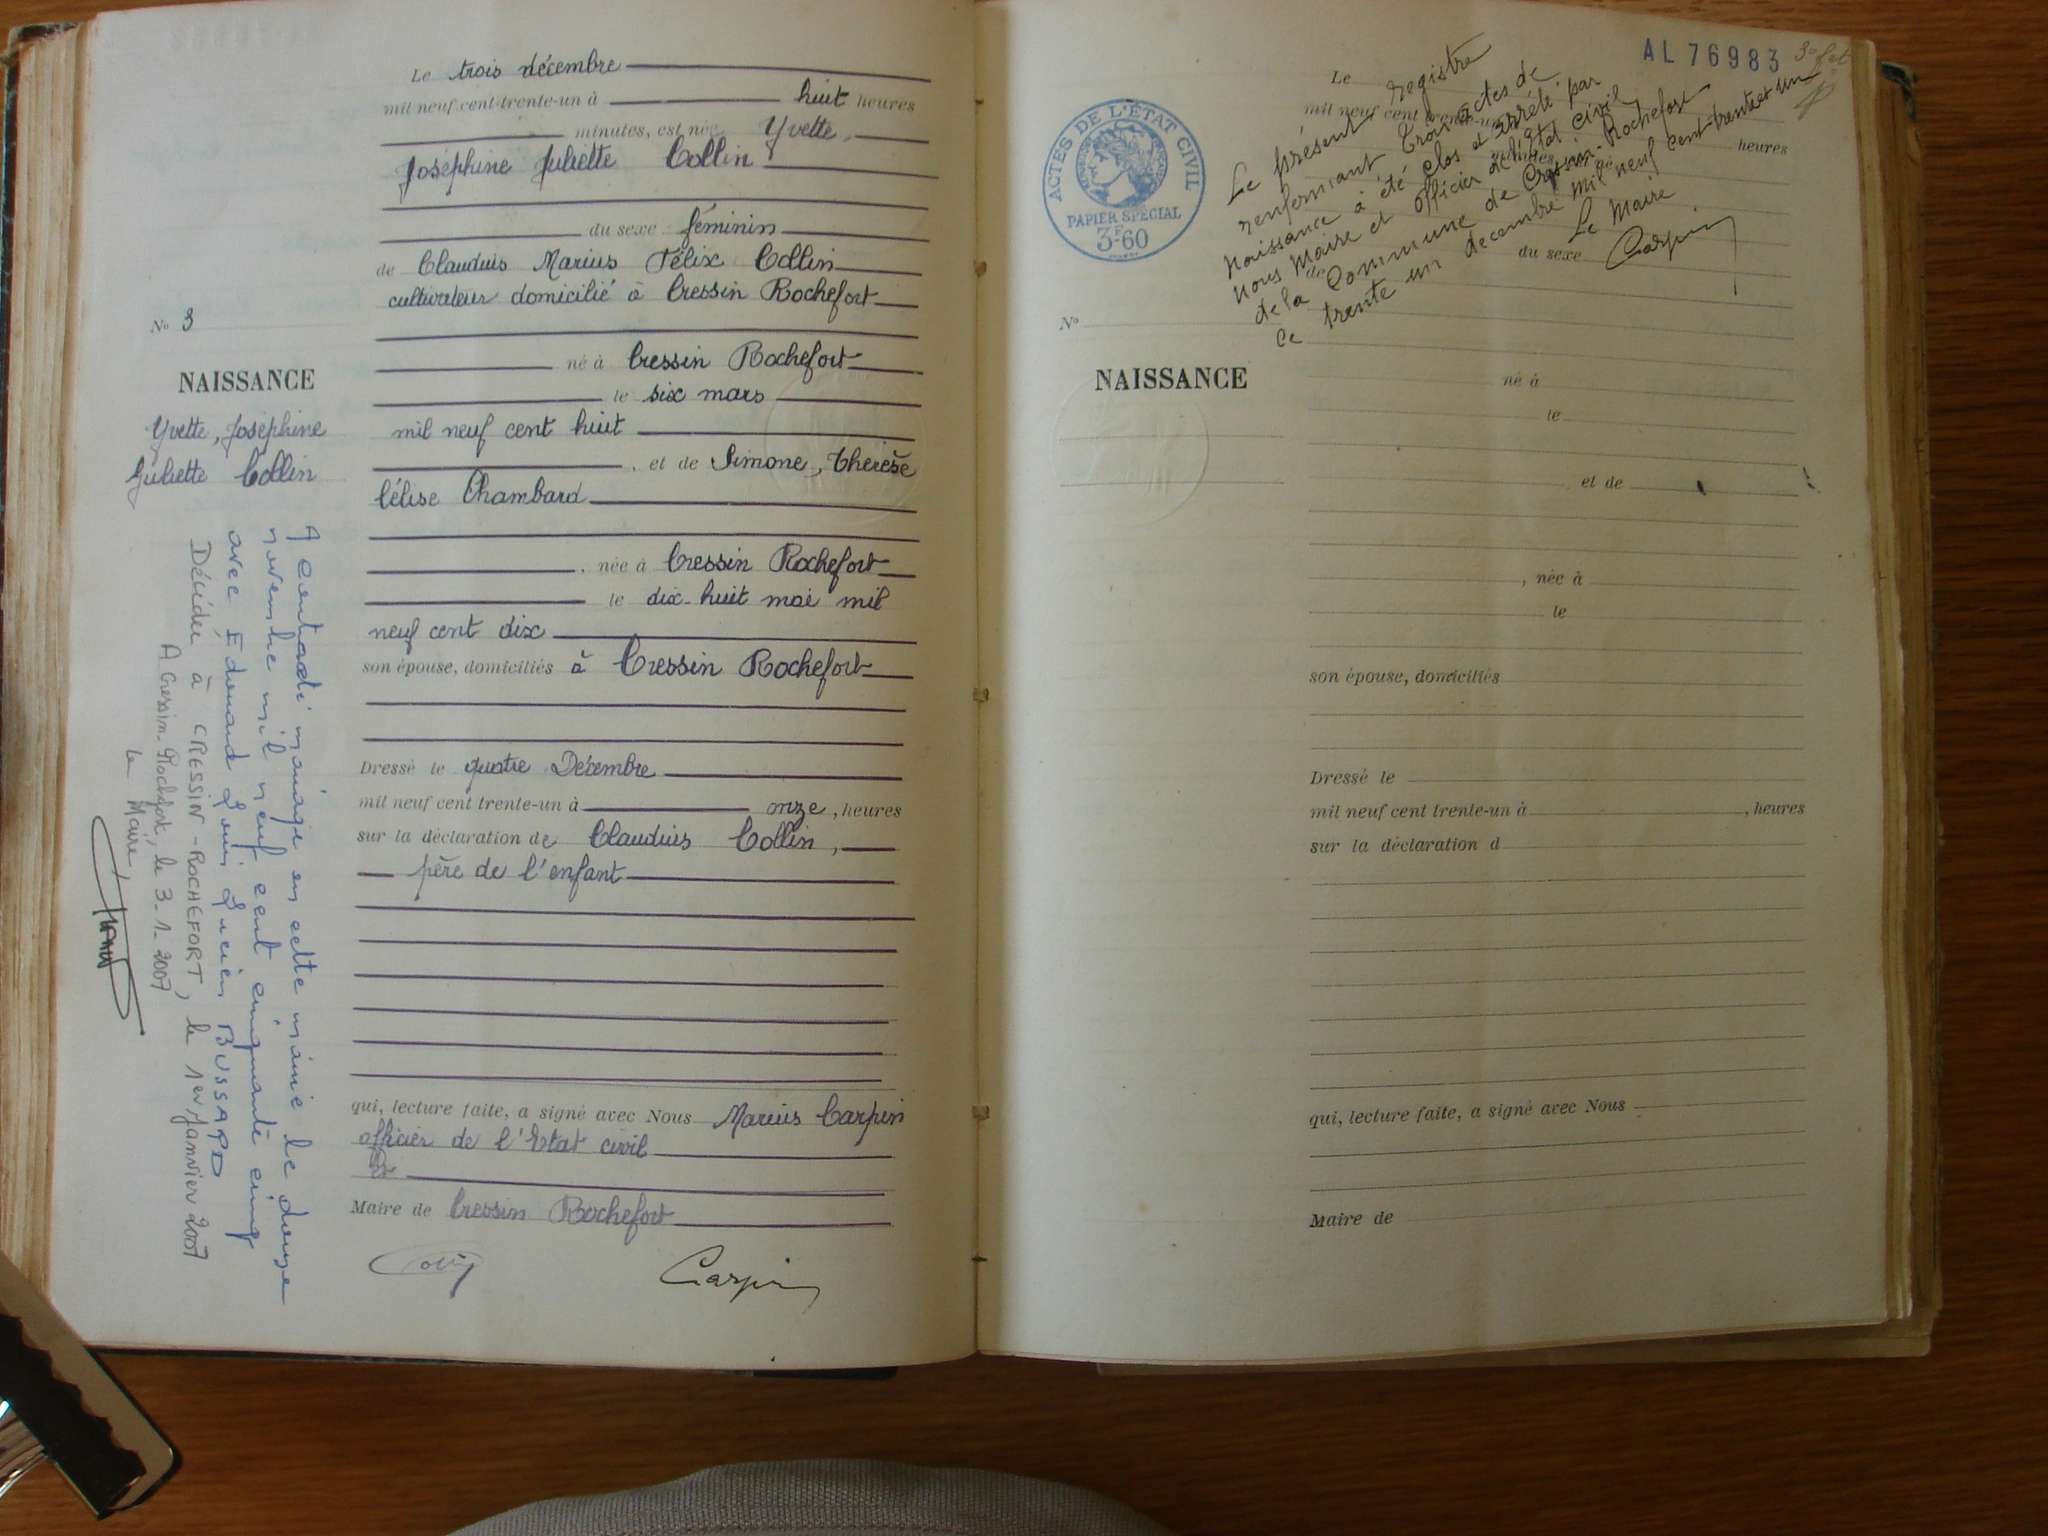 Le trois décembre
mil neuf cent trente-un à huit heures
minutes, est née Yvette,
Joséphine Juliette Collin
du sexe féminin
de Claudius Marius Félix Collin
cultivateur domicilié à Cressin Rochefort
né à Cressin Rochefort
le six mars
mil neuf cent huit
, et de Simone, Thérèse
Célise Chambard
, née à Cressin Rochefort
le dix-huit mai mil
neuf cent dix
son épouse, domiciliés à Cressin Rochefort
Dressé le quatre Décembre
mil neuf cent trente-un à onze, heures
sur la déclaration de Claudius Collin,
père de l'enfant
qui, lecture faite, a signé avec Nous Marius Carpin
officier de l'Etat civil
Maire de Cressin Rochefort
Collin
Carpin
No 3
NAISSANCE
Yvette, Joséphine
Juliette Collin
A contracté mariage en cette mairie le douze
novembre mil neuf cent cinquante cinq
avec Edouard Louis Lucien BUSSARD
Décédée à CRESSIN-ROCHEFORT, le 1er janvier 2007
A Cressin-Rochefort, le 3-1-2007
Le Maire,
AL 76983
ACTES DE L'ÉTAT CIVIL
PAPIER SPÉCIAL
3F60
Le présent registre
renfermant trois actes de
naissance a été clos et arrêté par
nous Maire et officier de l'Etat civil
de la Commune de Cressin-Rochefort
ce trente un decembre mil neuf cent trente et un
Le Maire
Carpin
Le
mil neuf cent trente-un
heures
minutes
du sexe
de
No
NAISSANCE
né à
le
et de
, née à
le
son épouse, domiciliés
Dressé le
mil neuf cent trente-un à , heures
sur la déclaration d
qui, lecture faite, a signé avec Nous
Maire de